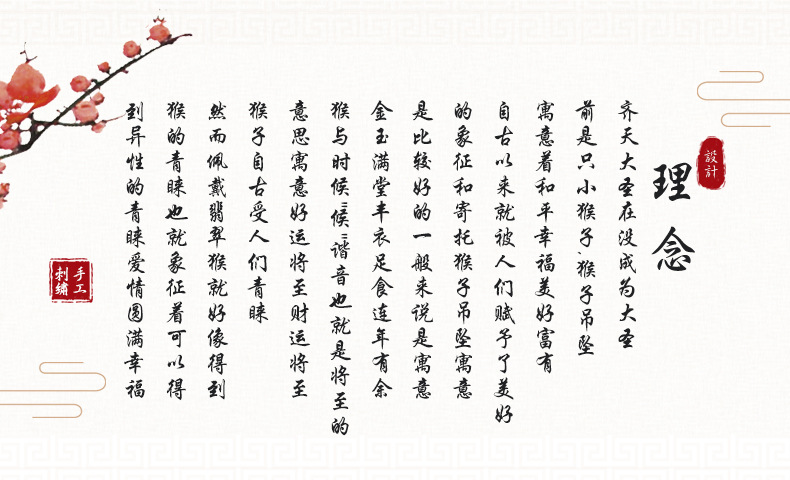 設計
理念
齐天大圣在没成为大圣
前是只小猴子,猴子吊坠
寓意着和平幸福美好富有
自古以来就被人们赋予了美好
的象征和寄托猴子吊坠寓意
是比较好的一般来说是寓意
金玉满堂丰衣足食连年有余
猴与时候"候"谐音也就是将至的
意思寓意好运将至财运将至
猴子自古受人们青睐
然而佩戴翡翠猴就好像得到
猴的青睐也就象征着可以得
到异性的青睐爱情圆满幸福
手工
刺绣